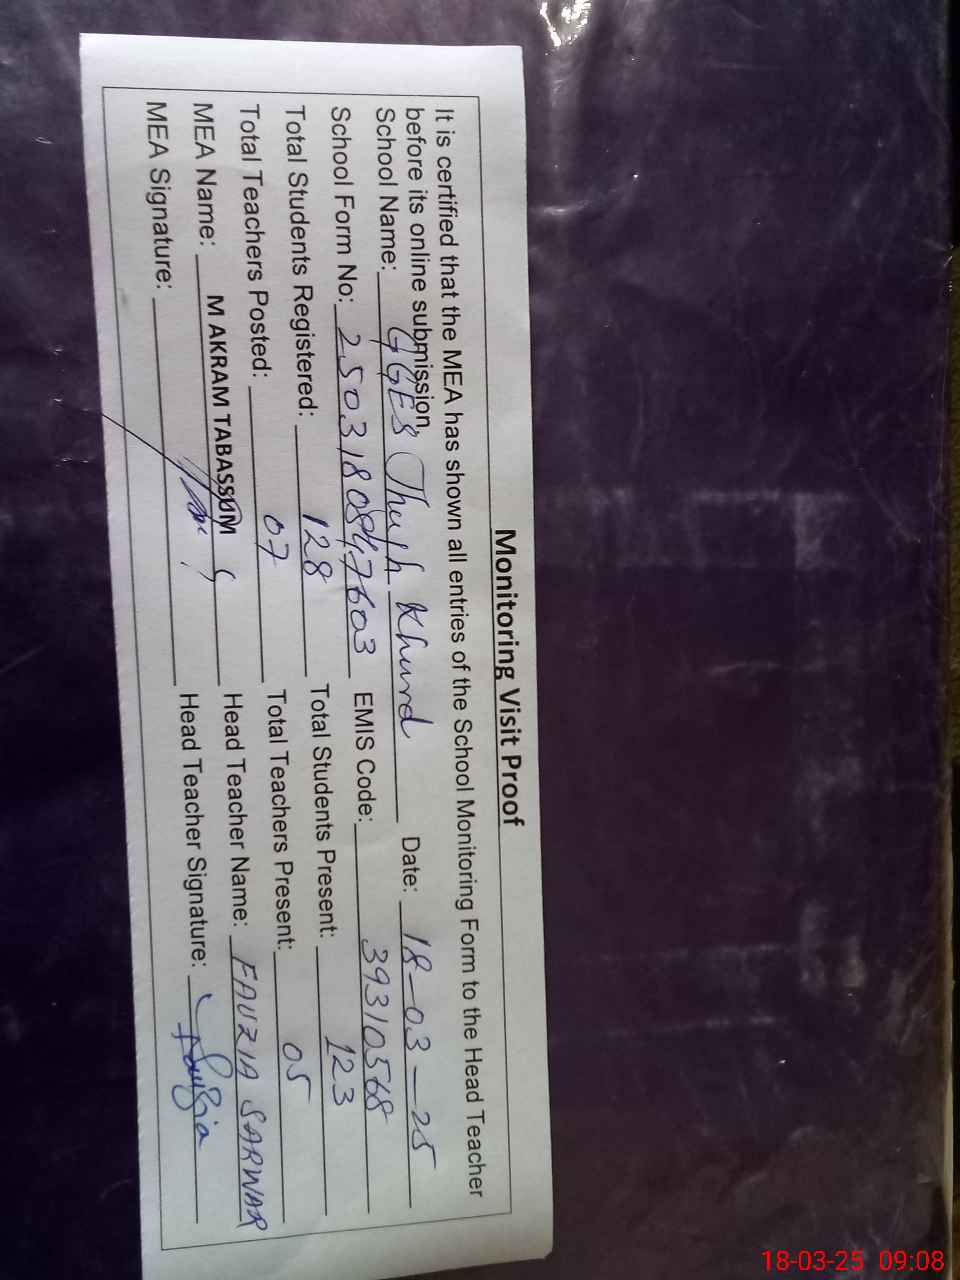 Monitoring Visit Proof
It is certified that the MEA has shown all entries of the School Monitoring Form to the Head Teacher
before its online submission.
School Name: GGES Thuh Khurd Date: 18-03-25
School Form No: 2503180847603 EMIS Code: 39310568
Total Students Registered: 128 Total Students Present: 123
Total Teachers Posted: 07 Total Teachers Present: 05
MEA Name: M AKRAM TABASSUM Head Teacher Name: FAUZIA SARWAR
MEA Signature: Head Teacher Signature: Fauzia
18-03-25 09:08